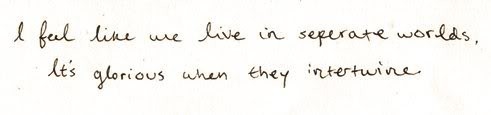 I feel like we live in seperate worlds.
It's glorious when they intertwine.